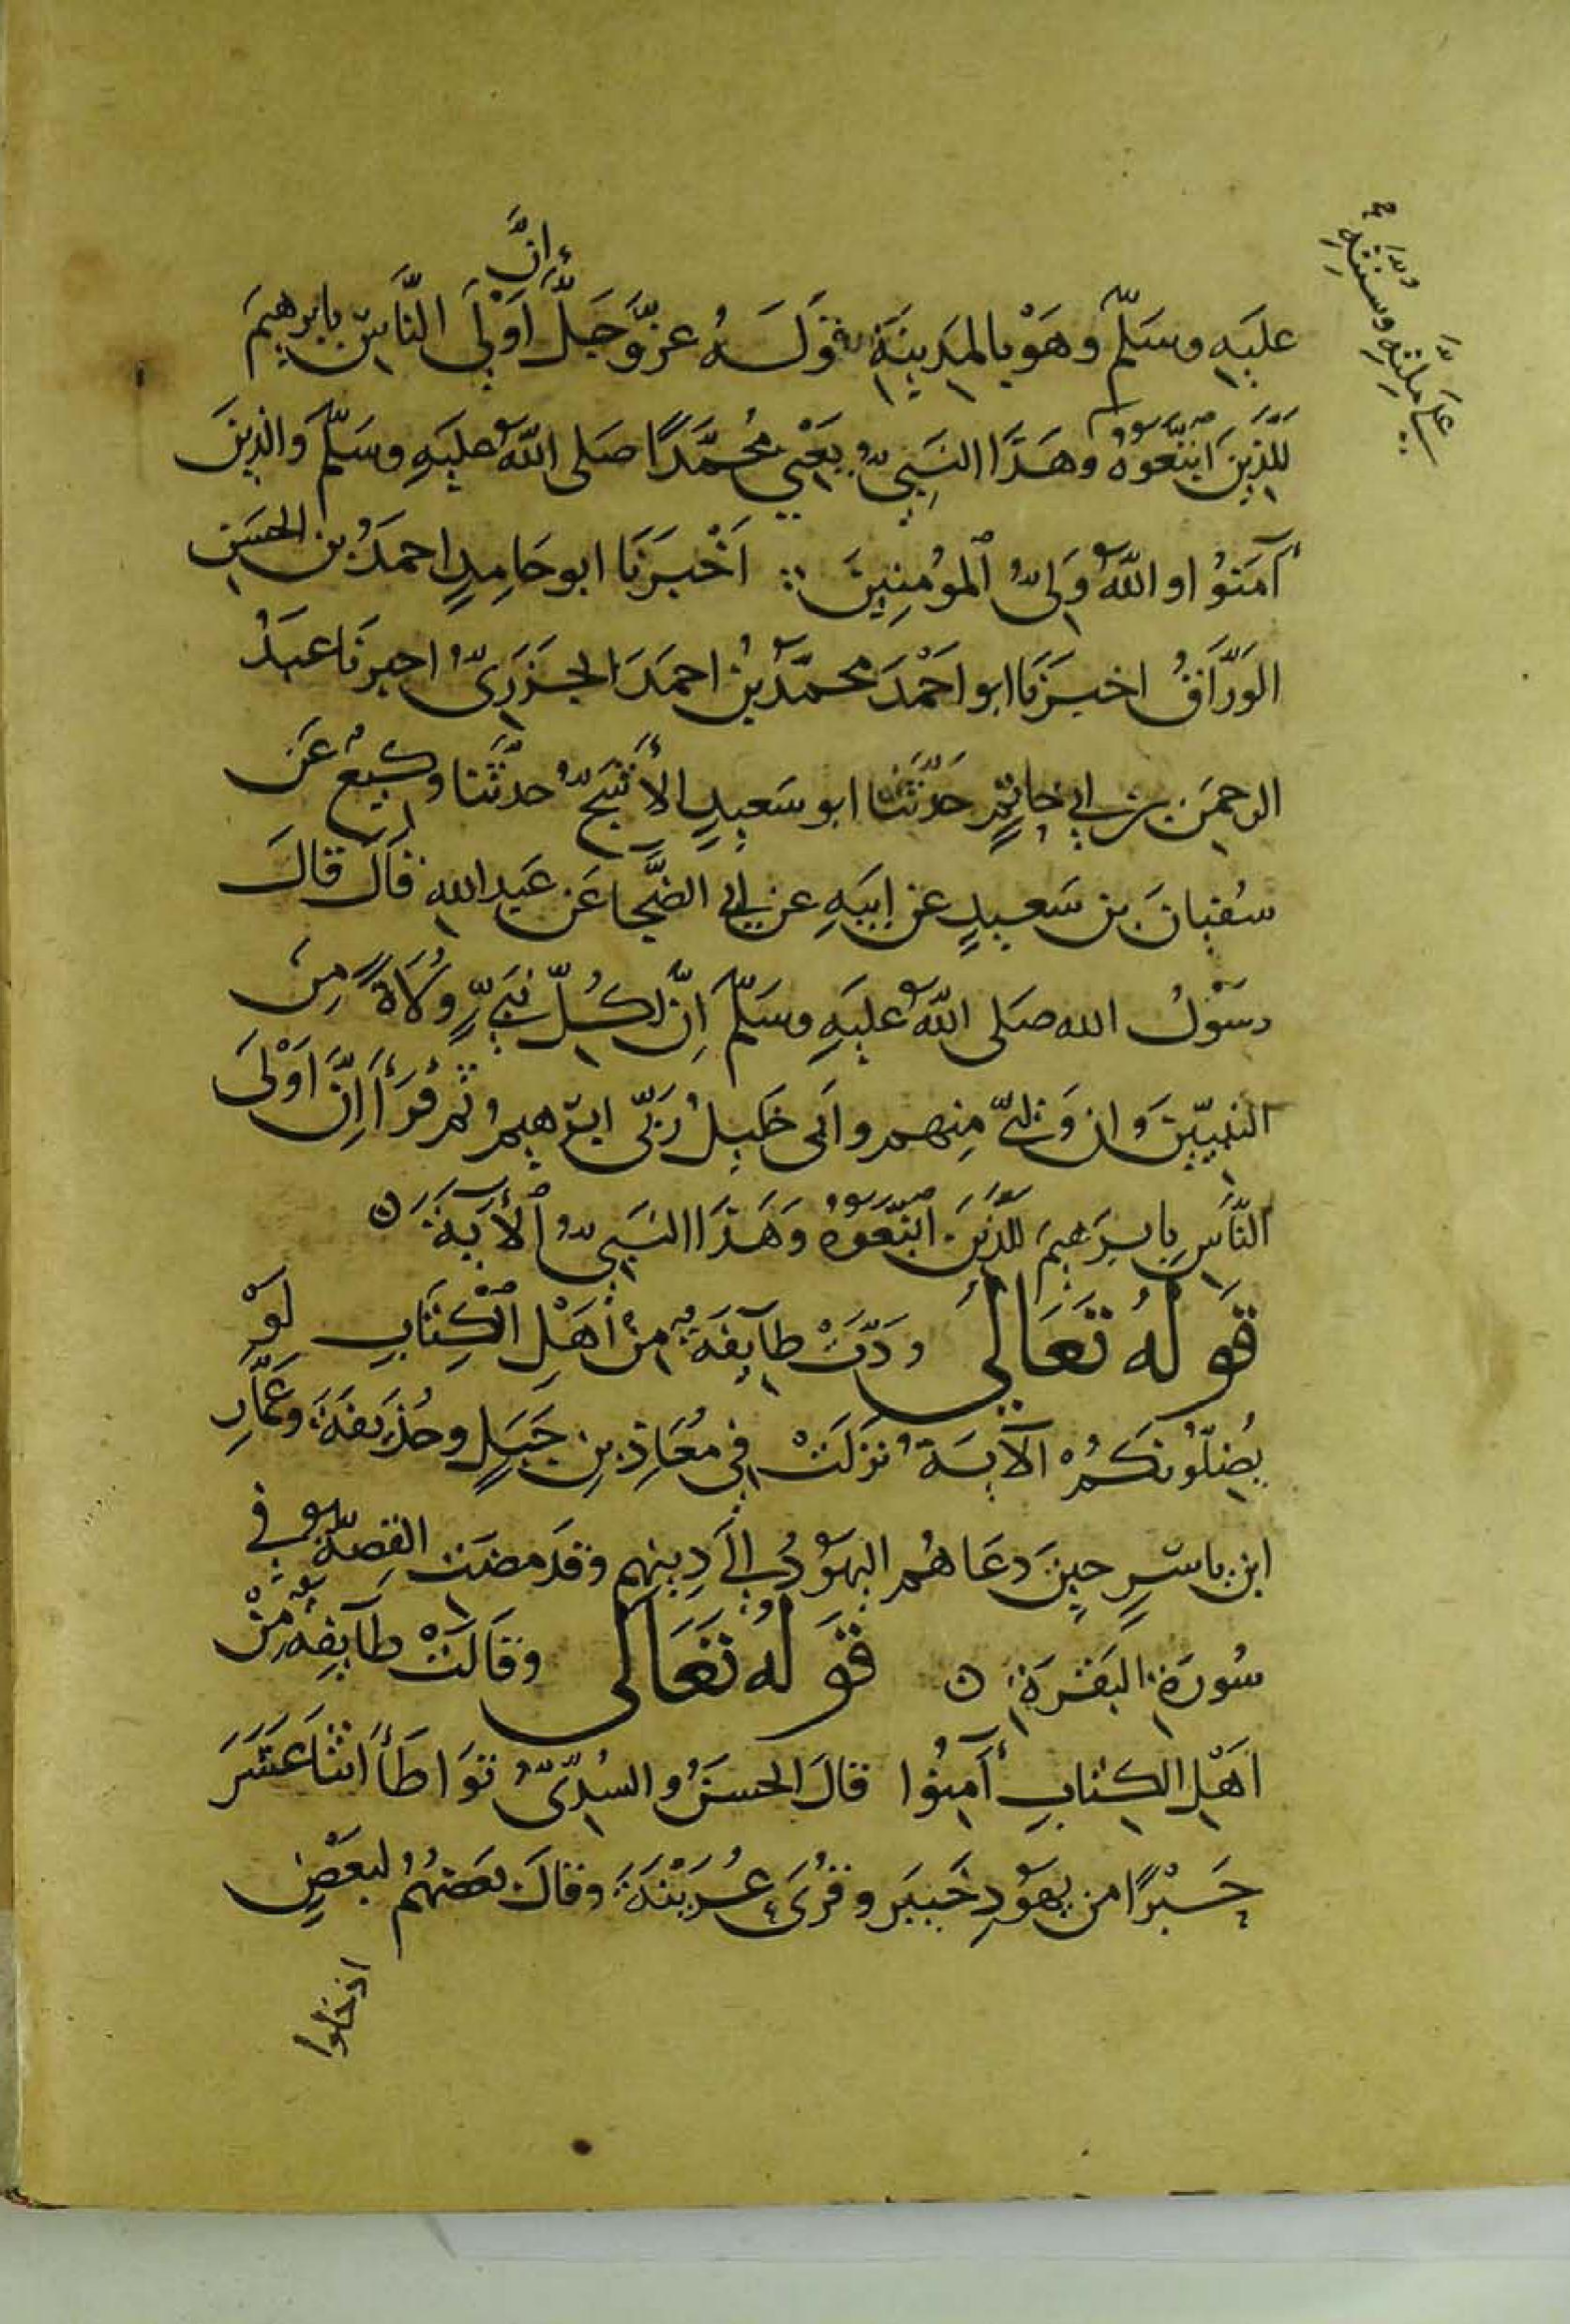 انَّ
عليَهِ وسَلّمَ وهَوْ بالمدِينَةِ قوَلَهُ عزَّوَجَلَّ اَوْلَى النَّاسِ بابرهيمَ
علَى مِلّتِهِ وسنتهِ
لَلَّذِينَ اتبَّعَوُهُ وهَذَا النَبِيُّ يَعْنِي مُحمَّدًا صَلى اللّه عليَهِ وسَلّمَ وَالذِينَ
آمَنَوُا واللّهُ وَلِىُّ المؤمِنِينَ ∴ اَخْبرَنَا ابو حَامِدٍ احمدُ بن الحسَنِ
الوَرَّاقُ اخبرَنَا ابو اَحْمَدَ محمّدُ بنُ احمَدَ الجَزَرَىُّ اخبرنَا عبدُ
الرحمَنِ بن ابى حَاتِمٍ حَدَّثَنَا ابو سَعيدٍ الأَشَجُّ حدثَّنا وكيعٌ عَن
سُفيانَ بن سَعيدٍ عن اَبيَهِ عن ابى الضُّحَا عَن عَبدِالله قالَ قالَ
رسَوْلُ الله صَلى اللّهُ عليَهِ وسَلّمَ اِنَّ لكُلِّ نَبىٍّ وُلَاةً مِنَ
النبيّينَ وان وَليِّى منِهم وابى خَليِلُ رَبّى ابرَهِيمُ ثم قرَأَ اِنَّ اَوْلىَ
النّاَسِ بابرَهِيمَ للَّذِينَ اتَّبعَوُهُ وَهَذَا النَبِىُّ الأَيَةَ ٥
قَولُهُ تعَالى ودّتْ طآيفَةٌ منْ اَهْلِ الكِتَابِ لَوْ
يُضِلّوُنكَمُ الآيَةُ نزَلَتْ فِى مُعَاذِ بنِ جَبَلٍ وحُذَيفَةَ وعَمَّارِ
ابن ياسٍرٍ حينَ دعَاهُم اليهَوُدُ الَى دِينهِم وقدَ مضَت القصَةُ فِى
سُورَةِ البَقَرَةِ ٥ قَولُهُ تعَالَى وقَالَتْ طآيفَةٌ مِنْ
اَهْلِ الكِتابِ آمِنُوا قالَ الحسَنُ والسُدِّىُّ تَوَاطَأَ اثنَا عَشَرَ
حَبْرًا من يهَوُدِ خَيبَر وقُرَى عُرَيْنَةَ وقالَ بعَضهُمُ لبعَضٍ
ادخلوا